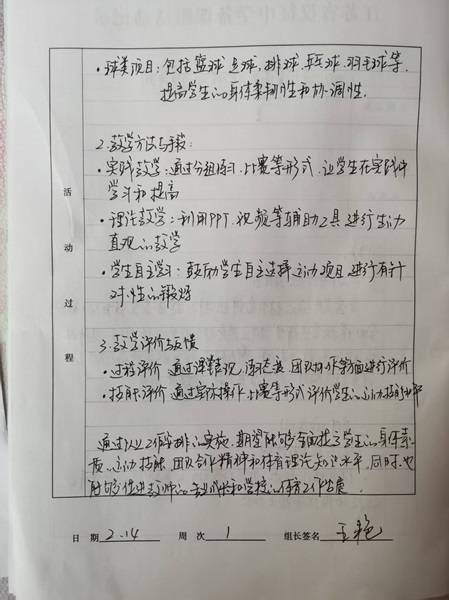 ·球类项目:包括篮球、足球、排球、乒乓球、羽毛球等,
提高学生的身体柔韧性和协调性.
2.教学方法与手段:
·实践教学:通过分组练习、比赛等形式,让学生在实践中
学习和提高
·理论教学:利用PPT、视频等辅助工具进行生动
直观的教学
·学生自主学习:鼓励学生自主选择运动项目进行有针
对性的锻炼
3.教学评价与反馈
·过程评价 通过课堂表现、学习态度、团队协作等方面进行评价
·技能评价 通过实际操作、比赛等形式评价学生的运动技能水平
通过以上工作安排的实施,期望能够全面提高学生的身体素
质、运动技能、团队合作精神和体育理论知识水平,同时,也
能够促进教师的专业成长和学校的体育工作发展.
活动过程
日 期 2.14 周 次 1 组长签名 王艳